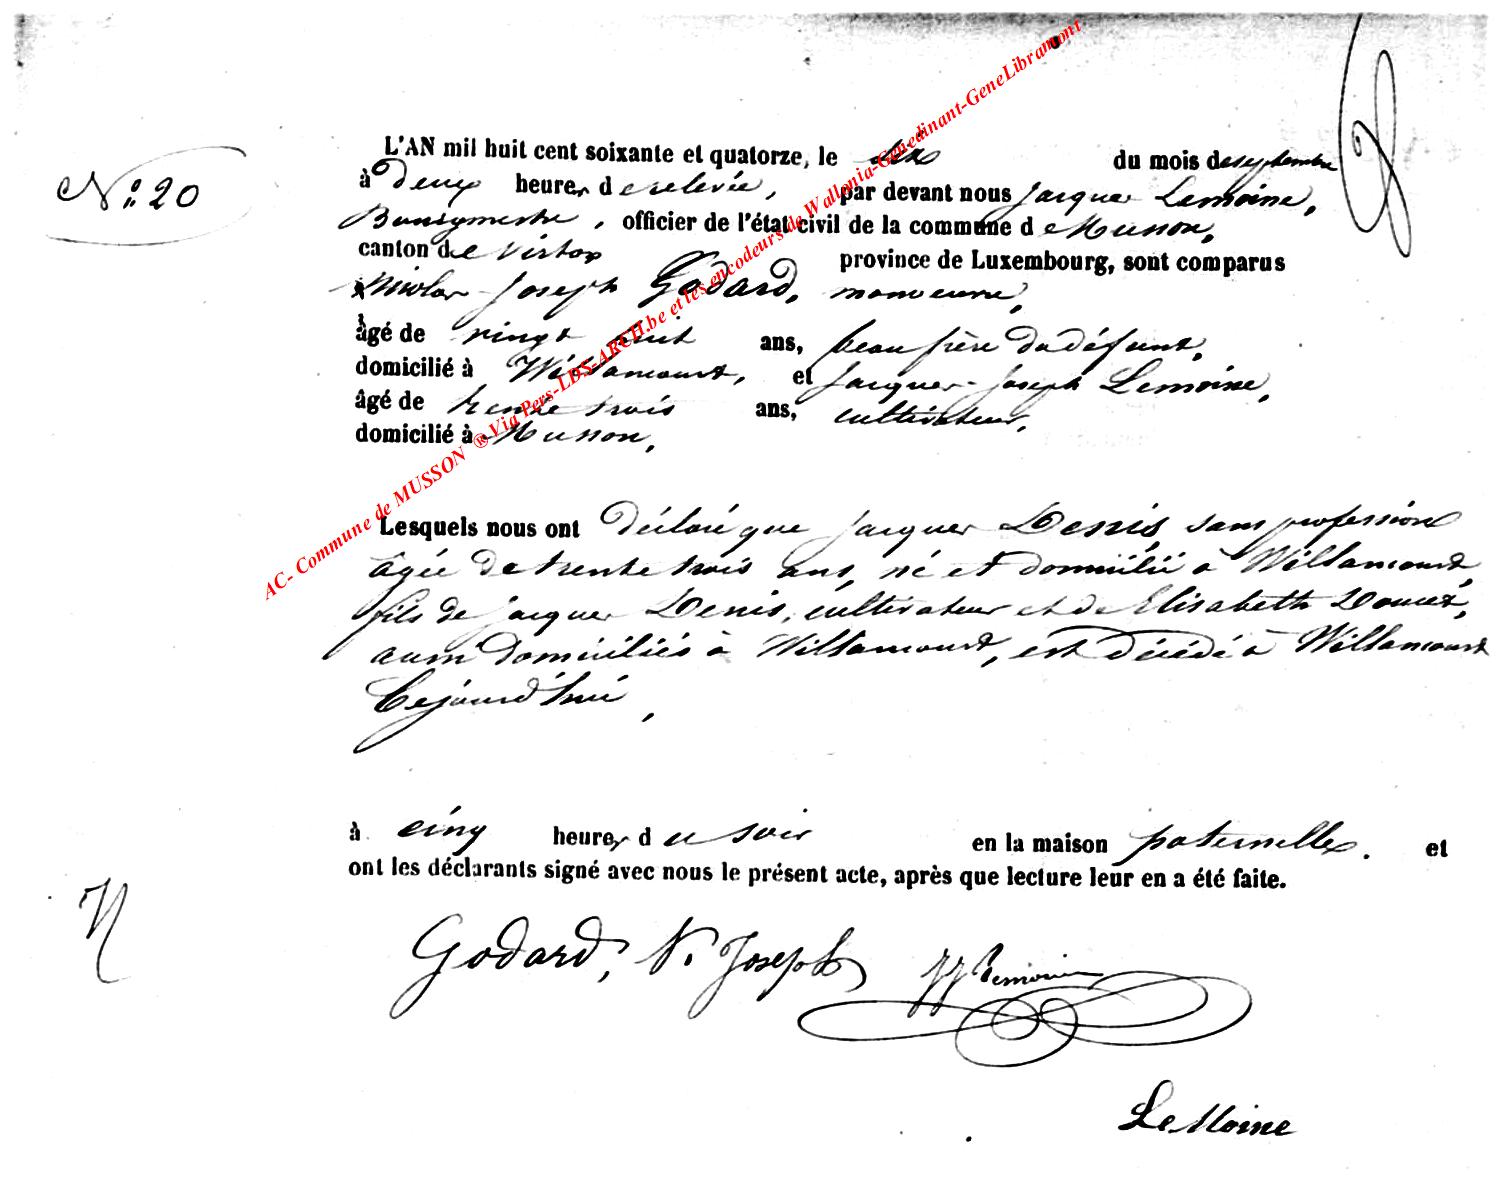 N°: 20
L'AN mil huit cent soixante et quatorze, le six du mois de septembre
à deux heures de relevée, par devant nous Jacques Lemoine,
Bourgmestre, officier de l'état civil de la commune de Musson,
canton de Virton province de Luxembourg, sont comparus
Nicolas Joseph Godard, manoeuvre,
âgé de vingt huit ans, beau frère du défunt,
domicilié à Willancourt, et Jacques-Joseph Lemoine,
âgé de trente trois ans, cultivateur,
domicilié à Musson,
Lesquels nous ont déclaré que Jacques Denis, sans profession
âgée de trente trois ans, né et domicilié à Willancourt,
fils de Jacques Denis, cultivateur et de Elisabeth Doucet,
aussi domiciliés à Willancourt, est décédé à Willancourt
Cejourd'hui,
à cinq heures du soir en la maison paternelle. et
ont les déclarants signé avec nous le présent acte, après que lecture leur en a été faite.
Godard, N. Joseph JJ Lemoine
LeMoine
AC- Commune de MUSSON ® Via Pers-LDS-ARCH.be et les encodeurs de Wallonia-Genedinant-GeneLibramont